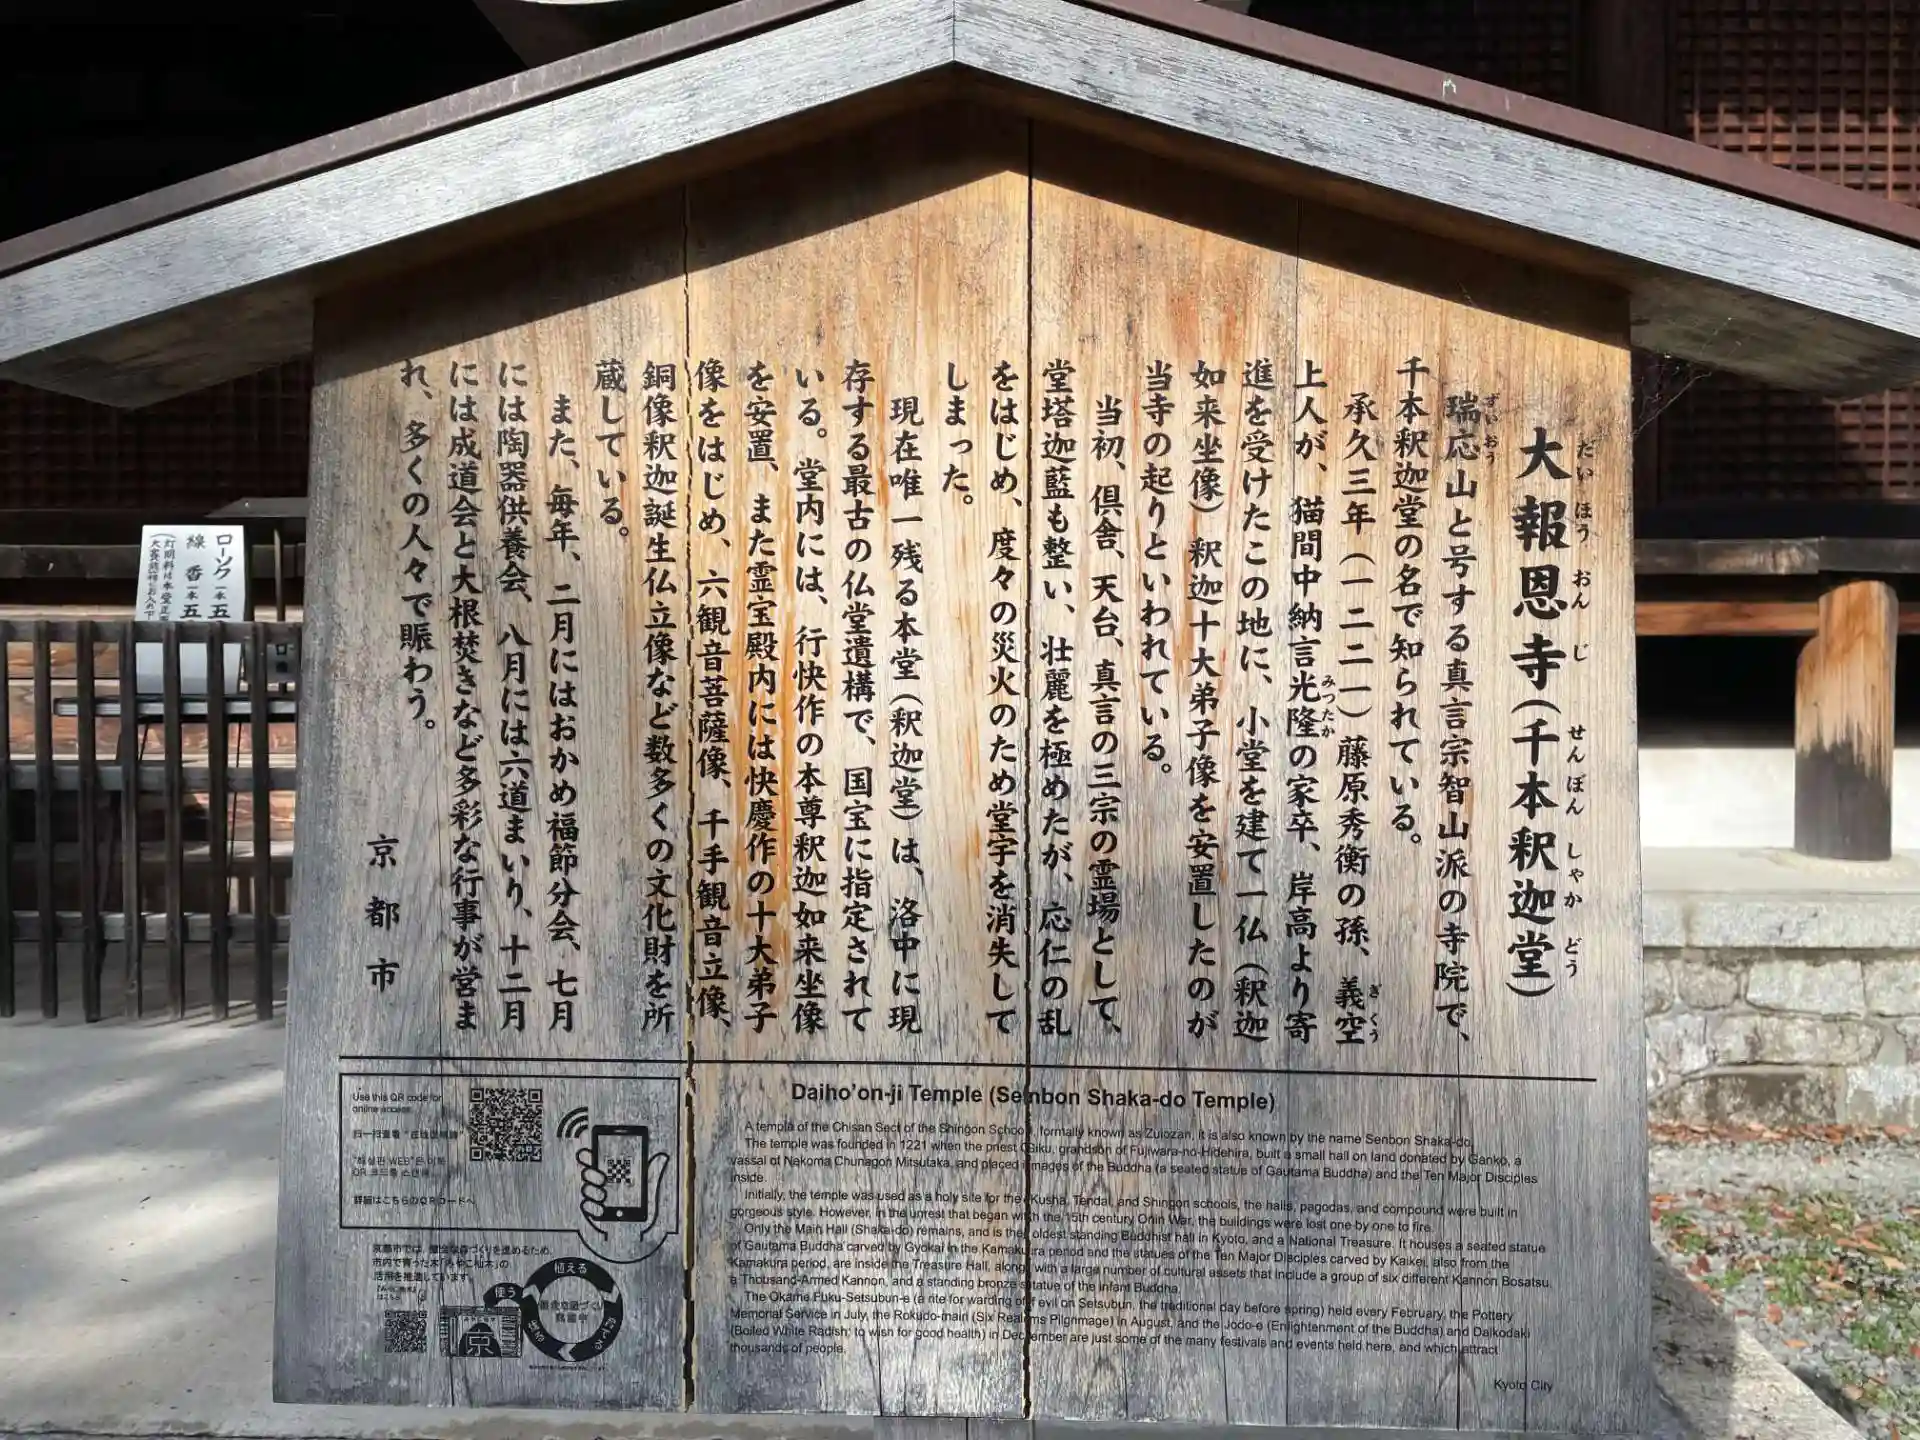 大報恩寺(千本釈迦堂)
だいほうおんじ せんぼんしゃかどう
瑞応山と号する真言宗智山派の寺院で、
ずいおう
千本釈迦堂の名で知られている。
承久三年(一二二一)藤原秀衡の孫、義空
ぎくう
上人が、猫間中納言光隆の家卒、岸高より寄
みつたか
進を受けたこの地に、小堂を建て一仏(釈迦
如来坐像)釈迦十大弟子像を安置したのが
当寺の起りといわれている。
当初、倶舎、天台、真言の三宗の霊場として、
堂塔迦藍も整い、壮麗を極めたが、応仁の乱
をはじめ、度々の災火のため堂宇を消失して
しまった。
現在唯一残る本堂(釈迦堂)は、洛中に現
存する最古の仏堂遺構で、国宝に指定されて
いる。堂内には、行快作の本尊釈迦如来坐像
を安置、また霊宝殿内には快慶作の十大弟子
像をはじめ、六観音菩薩像、千手観音立像、
銅像釈迦誕生仏立像など数多くの文化財を所
蔵している。
また、毎年、二月にはおかめ福節分会、七月
には陶器供養会、八月には六道まいり、十二月
には成道会と大根焚きなど多彩な行事が営ま
れ、多くの人々で賑わう。
京都市
Daiho'on-ji Temple (Senbon Shaka-do Temple)
A temple of the Chisan Sect of the Shingon School, formally known as Zuiozan, it is also known by the name Senbon Shaka-do.
The temple was founded in 1221 when the priest Giku, grandson of Fujiwara-no-Hidehira, built a small hall on land donated by Ganko, a
vassal of Nekoma Chunagon Mitsutaka, and placed images of the Buddha (a seated statue of Gautama Buddha) and the Ten Major Disciples
inside.
Initially, the temple was used as a holy site for the Kusha, Tendai, and Shingon schools, the halls, pagodas, and compound were built in
gorgeous style. However, in the unrest that began with the 15th century Onin War, the buildings were lost one by one to fire.
Only the Main Hall (Shaka-do) remains, and is the oldest standing Buddhist hall in Kyoto, and a National Treasure. It houses a seated statue
of Gautama Buddha carved by Gyokai in the Kamakura period and the statues of the Ten Major Disciples carved by Kaikei, also from the
Kamakura period, are inside the Treasure Hall, along with a large number of cultural assets that include a group of six different Kannon Bosatsu,
a Thousand-Armed Kannon, and a standing bronze statue of the infant Buddha.
The Okame Fuku-Setsubun-e (a rite for warding off evil on Setsubun, the traditional day before spring) held every February, the Pottery
Memorial Service in July, the Rokudo-mairi (Six Realms Pilgrimage) in August, and the Jodo-e (Enlightenment of the Buddha) and Daikodaki
(Boiled White Radish; to wish for good health) in December are just some of the many festivals and events held here, and which attract
thousands of people.
Kyoto City
Use this QR code for
online access.
扫一扫查看
"해설판 WEB"은 이쪽
QR 코드를 스캔
詳細はこちらのQRコードへ
京都市では、健全な森づくりを進めるため、
市内で育った木「みやこ杣木」の
活用を推進しています。
植える
育てる
使う
京
ローソク 一本 五
線香 一本 五